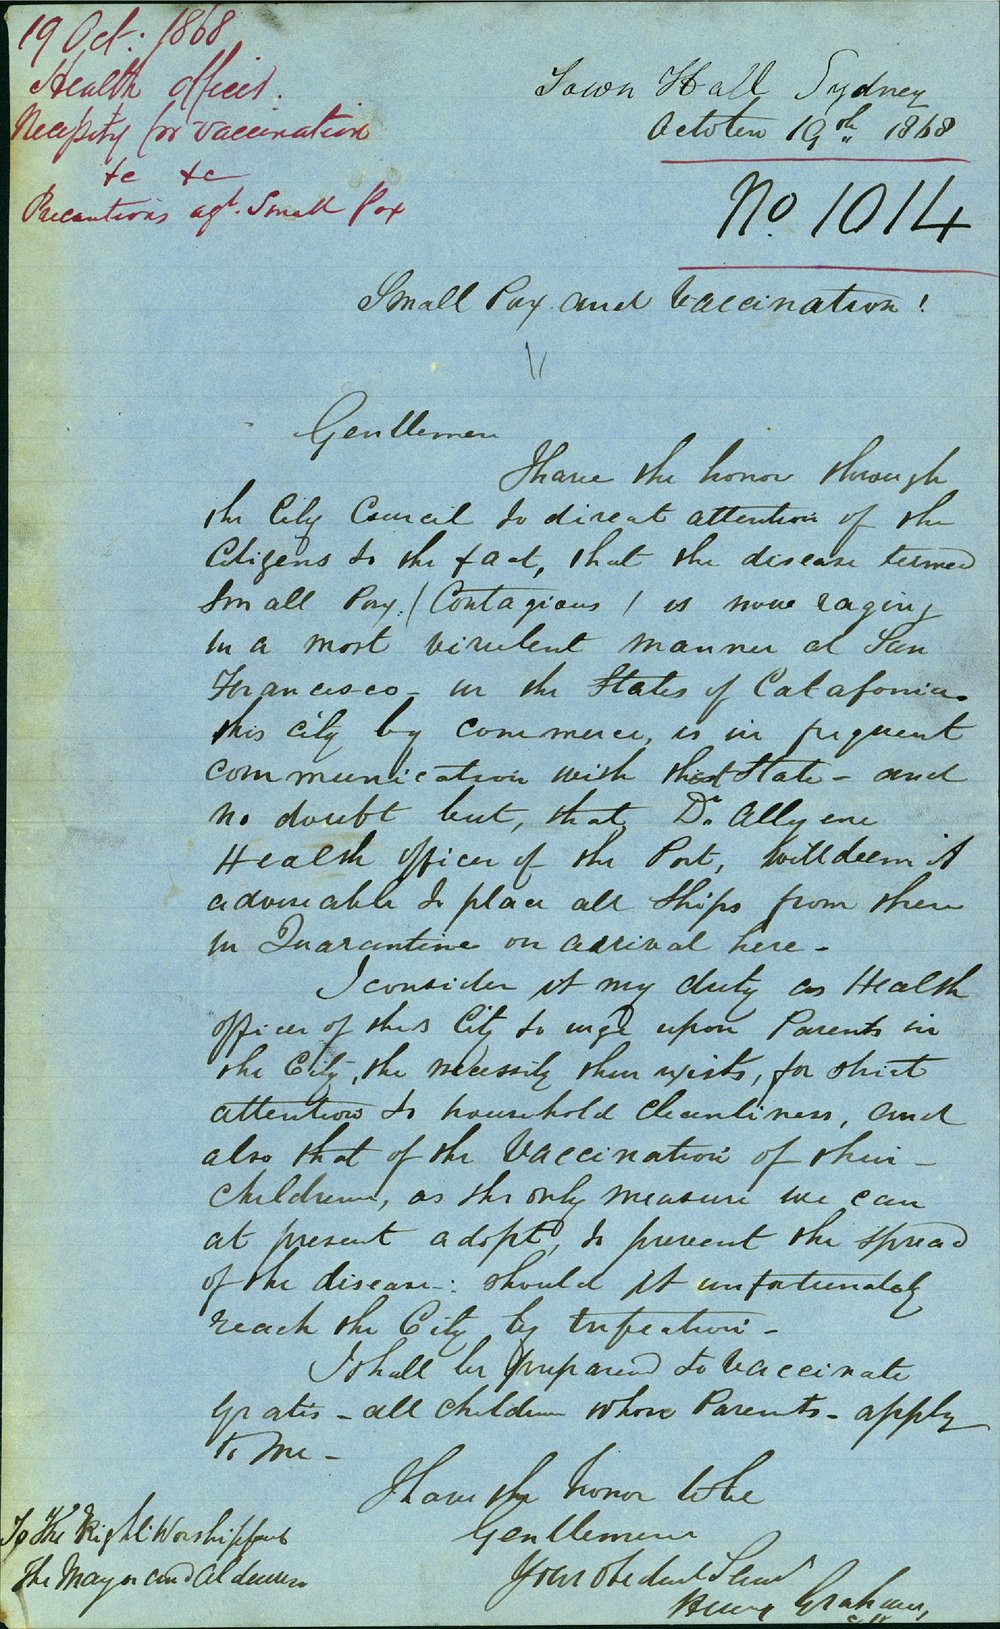 19 Oct: 1868
Health officer.
Necessity for Vaccination
&c &c
Precautions agt. Small Pox
Town Hall Sydney
October 19th 1868
No. 1014
Small Pox and Vaccination!
Gentlemen
I have the honor through
the City Council to direct attention of the
Citizens to the fact, that the disease termed
Small Pox (Contagious) is now raging
in a most virulent manner at San
Francisco - in the States of Calafonia.
this city by commerce, is in frequent
communication with that State - and
no doubt but, that Dr. Alleyne
Health officer of the Port, will deem it
adviseable to place all Ships from there
in Quarantine on arrival here -
I consider it my duty as Health
officer of this City to urge upon Parents in
the City, the necessity there exists, for strict
attention to household cleanliness, and
also that of the Vaccination of their -
children, as the only measure we can
at present adopt, to prevent the spread
of the disease: should it unfortunately
reach the City by infection -
I shall be prepared to Vaccinate
gratis - all children whose Parents - apply
to me -
I have the honor to be
Gentlemen
Your Obedient Servt
Henry Graham,
To The Right Worshipful
The Mayor and Aldermen